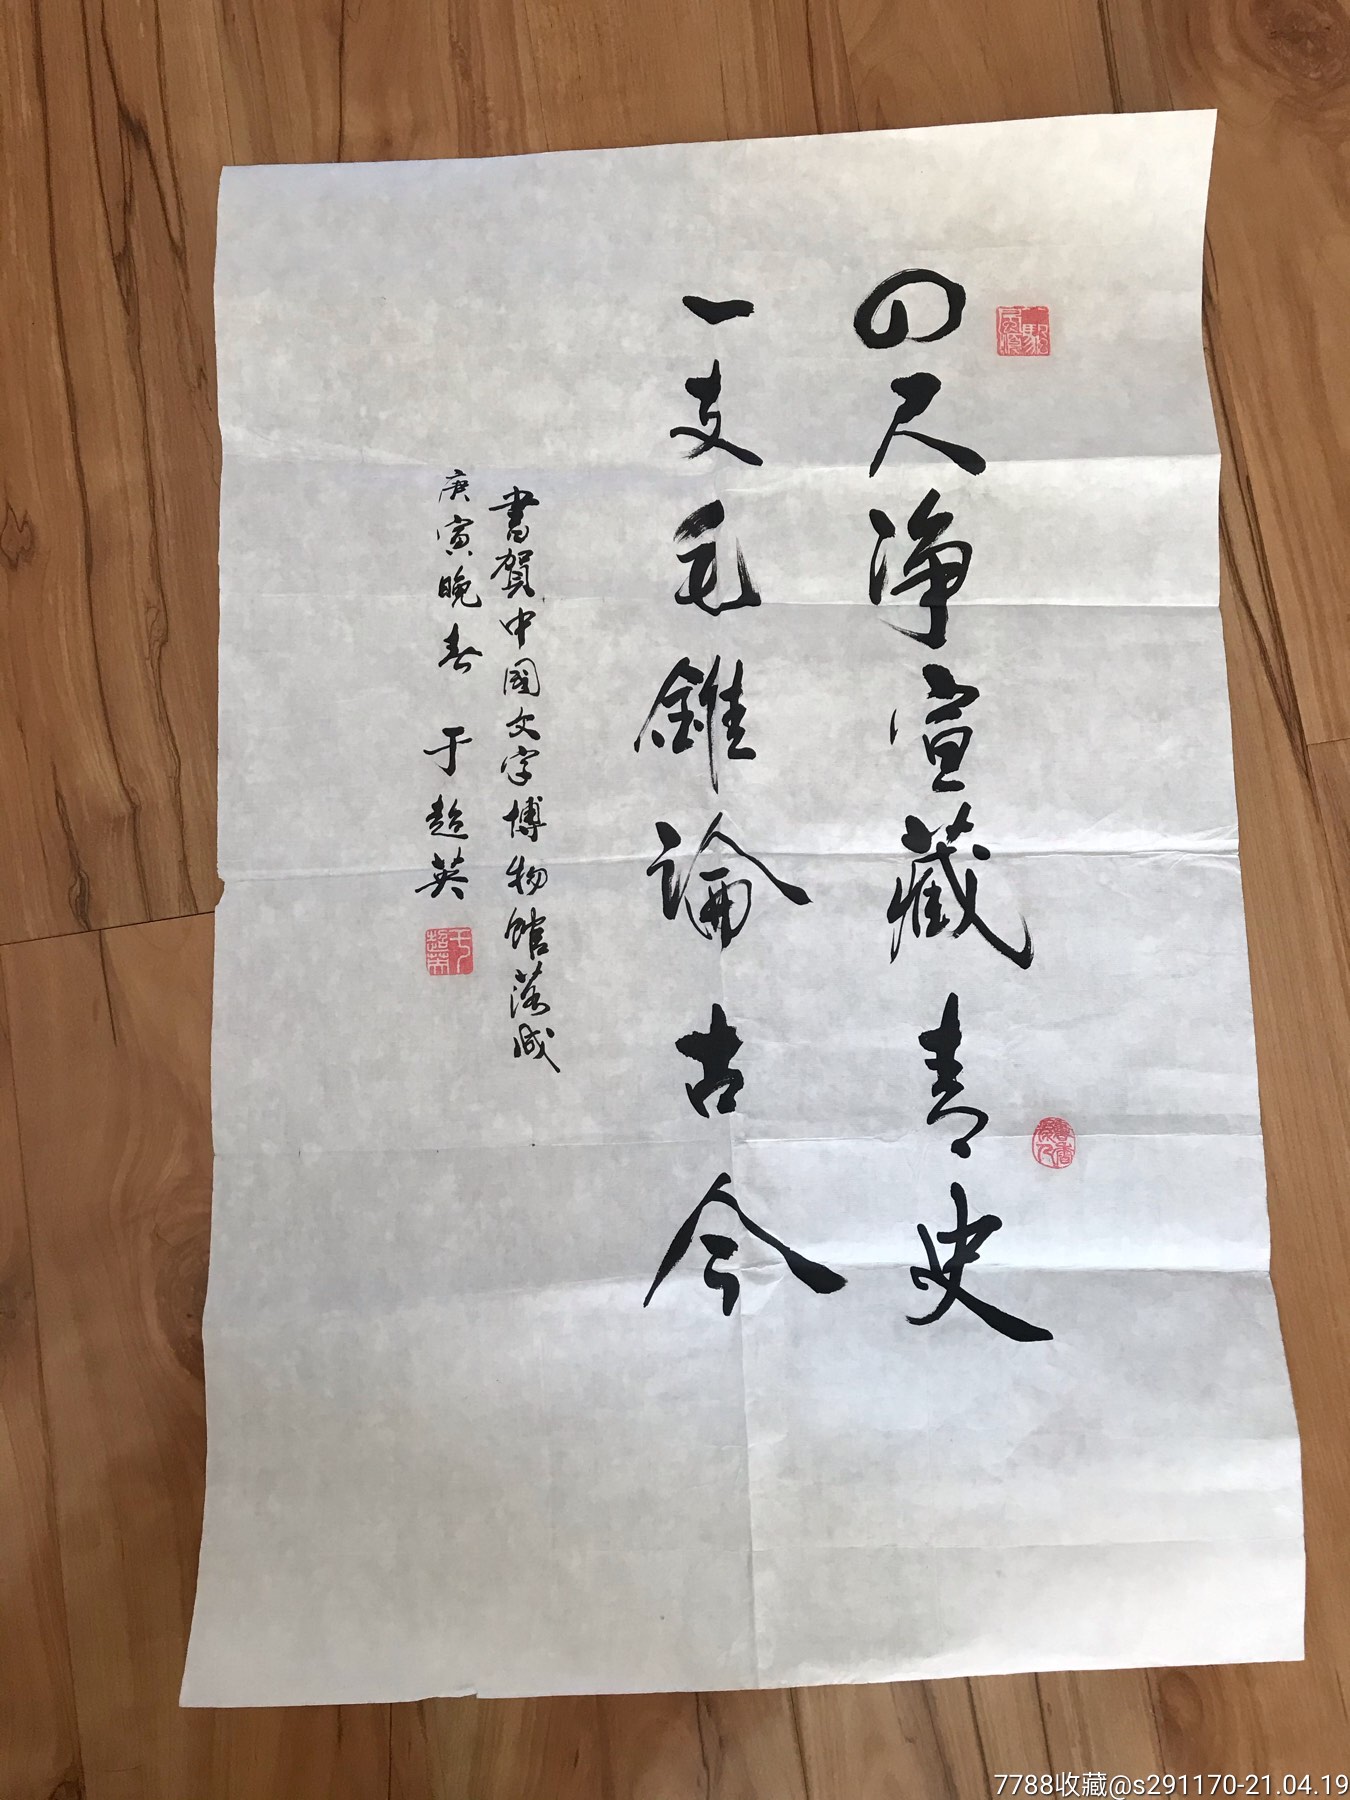 四尺净宣藏青史
一支毛錐論古今
書賀中國文字博物館落成
庚寅晚春 于超英
7788收藏@s291170-21.04.19